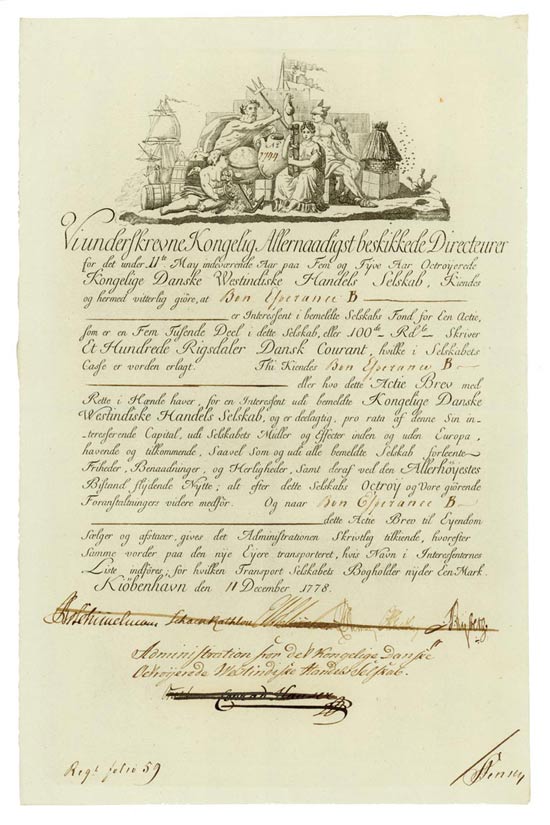 No
1799
Vi underskrevne Kongelig Allernaadigst beskikkede Directeurer
for det under 11te May indværende Aar paa Fem og Tyve Aar Octroyerede
Kongelige Danske Westindiske Handels Selskab, Kiendes
og hermed vitterlig giöre, at Bon Esperance B
er Interessent i bemeldte Selskabs Fond for Een Actie,
som er en Fem Tusende Deel i dette Selskab, eller 100de Rdlr Skriver
Et Hundrede Rigsdaler Dansk Courant, hvilke i Selskabets
Casse er vorden erlagt. Thi Kiendes Bon Esperance B
eller hvo dette Actie Brev med
Rette i Hænde haver, for en Interessent udi bemeldte Kongelige Danske
Westindiske Handels Selskab, og er deelagtig, pro rata af denne Sin in-
teresserende Capital, udi Selskabets Midler og Effecter inden og uden Europa,
havende og tilkommende, Saavel Som og udi alle bemeldte Selskab forleente
Friheder, Benaadninger, og Herligheder, Samt deraf ved den Allerhöyestes
Bistand flydende Nytte; alt efter dette Selskabs Octroy og Vore giörende
Foranstaltningers videre medför. Og naar Bon Esperance B
dette Actie Brev til Eyendom
Sælger og afstaaer, gives det Administrationen Skriftlig tilkiende, hvorefter
Samme vorder paa den nye Eyere transporteret, hvis Navn i Interessenternes
Liste indföres; for hvilken Transport Selskabets Bogholder nyder Een Mark.
Kiöbenhavn den 11 December 1778.
Schimmelmann Schack Rathlou Ryberg
Administration for det Kongelige Danske
Octroyerede Westindiske Handels Selskab.
Conrad Hansen
Regt folio 59
Jensen